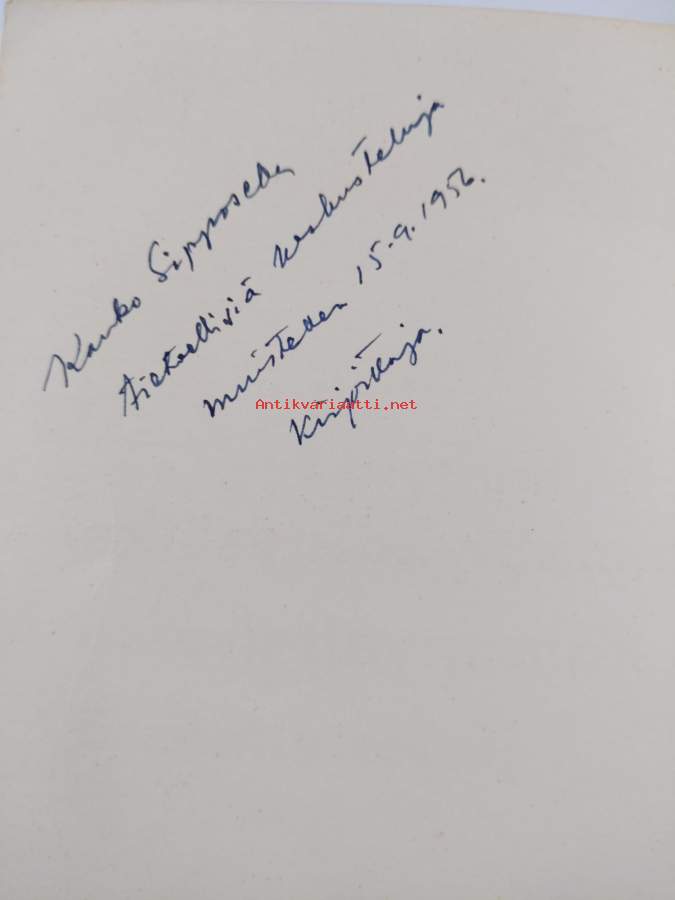 Kauko Sipposelle
tieteellisiä keskusteluja
muistellen 15.9.1956.
Kirjoittaja.
Antikvariaatti.net